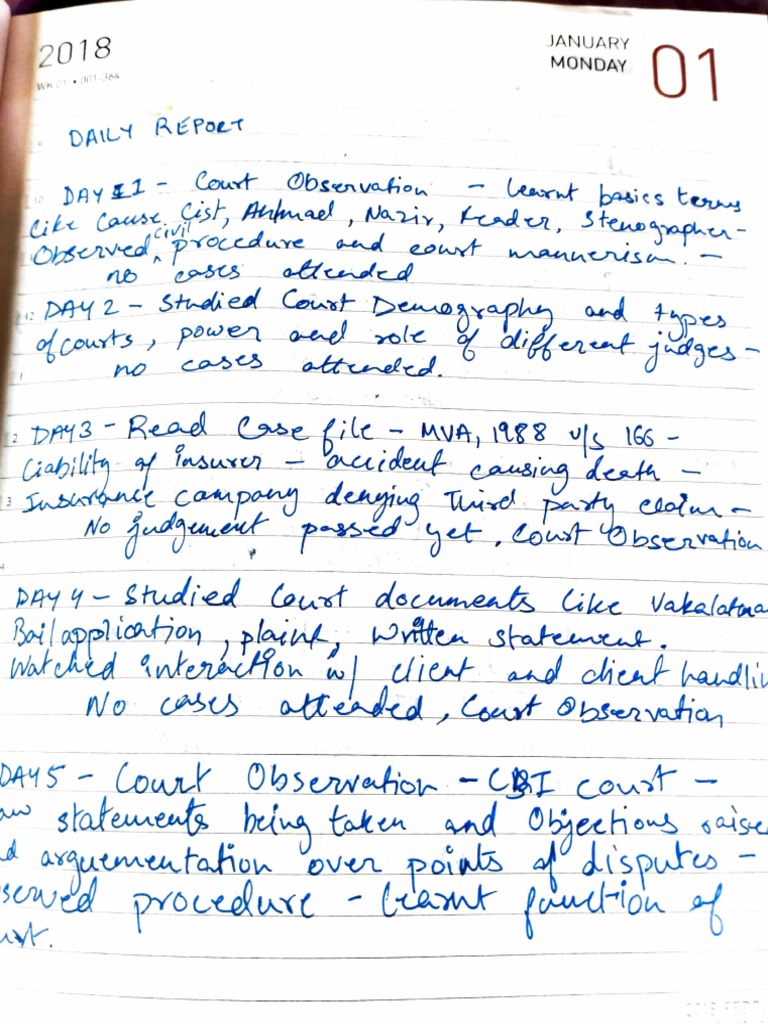 2018
WK 01 • 001-364
JANUARY
MONDAY
01
DAILY REPORT
DAY 1 - Court Observation - learnt basics terms
like Cause List, Ahlmad, Nazir, Reader, Stenographer -
Observed civil procedure and court mannerism. -
no cases attended
DAY 2 - Studied Court Demography and types
of courts, power and role of different judges -
no cases attended.
DAY 3 - Read Case file - MVA, 1988 u/s 166 -
Liability of insurer - accident causing death -
Insurance company denying Third party claim -
No judgement passed yet, Court Observation
DAY 4 - Studied Court documents like Vakalatna
Bail application, plaint, written statement.
Watched interaction w/ client and client handlin
No cases attended, Court Observation
DAY 5 - Court Observation - CBI court -
aw statements being taken and Objections raise
d arguementation over points of disputes -
served procedure - learnt function of
urt.